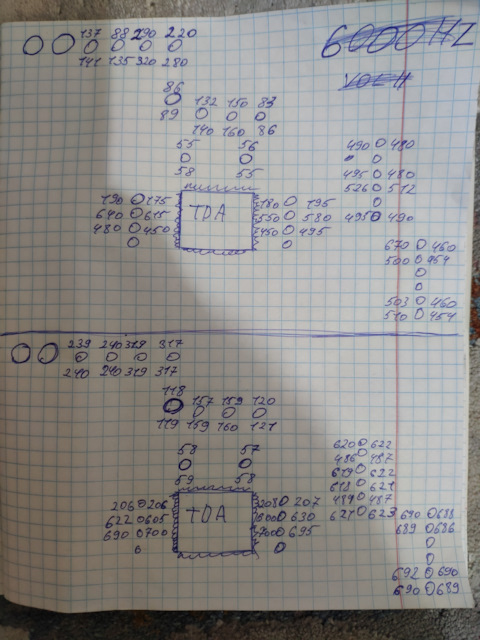 137 88 290 220
141 135 320 280
6000HZ
86
89
132 150 83
140 160 86
55 56
58 55
490 480
495 480
526 512
495 490
190 175
640 615
480 450
TDA
180 195
550 580
450 495
670 460
500 454
503 460
510 454
239 240 318 317
240 240 319 317
118
119
157 159 120
159 160 121
58 57
59 58
620 622
486 487
619 622
618 621
489 487
621 623
206 206
622 605
690 700
TDA
208 207
600 630
700 695
690 688
689 686
692 690
690 689